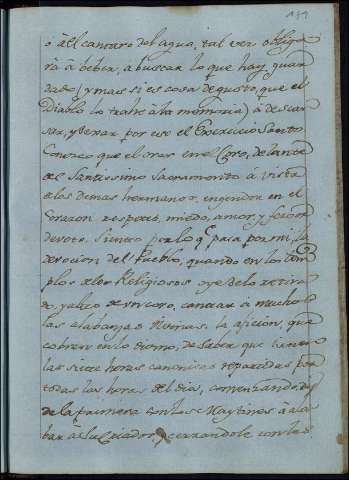 191
ò à el cantaro del agua, tal vez obliga-
rà à beber, à buscar lo que hay guar
dado (y mas si es cosa de gusto, que el
Diablo lo trahe à la memoria) à descan
sar, y dexar por eso el Exercicio Santo
Conozco que el orar en el Coro, delante
del Santissimo Sacramento à vista
de los demas hermanos, engendra en el
Corazon respetos, miedo, amor, y fervor
devoto. Siento por lo q.e pasa por mi, la
devocion del Pueblo, quando en los tem
plos de los Religiosos oye de lo retira
do, y alto de un coro, cantar à muchos
las alabanzas Divinas, la aficion, que
cobren en lo divino, de saber que tienen
las siete horas canonicas repartidas por
todas las horas del dia, comenzando, des
de la primera con los Maytines à ala
bar à su Criador, y cerrandole con las